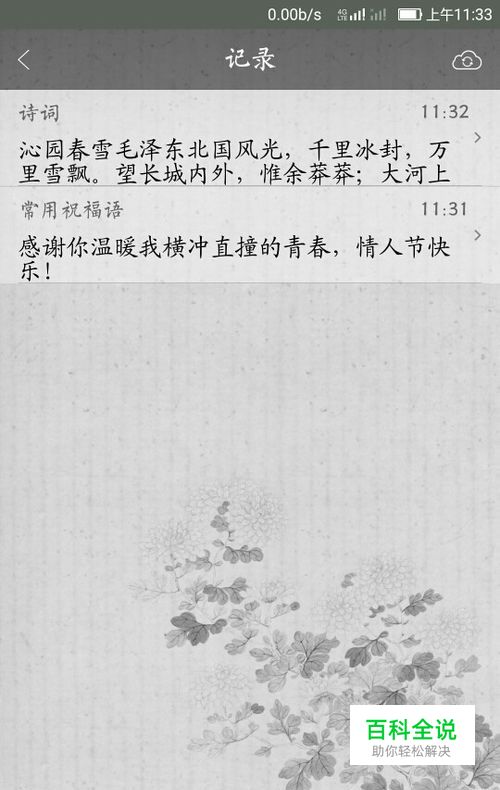 0.00b/s 4G LTE 上午11:33
记录
诗词 11:32
沁园春雪毛泽东北国风光，千里冰封，万
里雪飘。望长城内外，惟余莽莽；大河上
常用祝福语 11:31
感谢你温暖我横冲直撞的青春，情人节快
乐！
百科全说
助你轻松解决